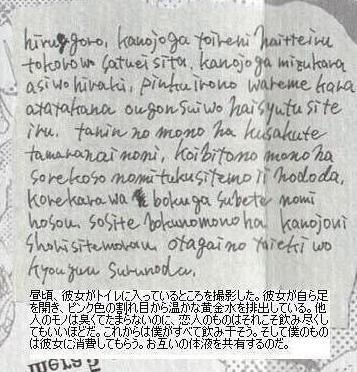 hirugoro, kanojoga toireni haitteiru
tokorowo satueisita. kanojoga mizukara
asiwo hiraki, pinkuirono wareme kara
atatakana ougonsuiwo haisyutusite
iru. tanin no mono ha kusakute
tamaranai noni, koibitono monoha
sorekoso nomitukusitemo ii hododa.
korekara wa bokuga subete nomi
hosou. sosite bokunomonoha kanojoni
shohisitemorau. otagai no taieki wo
kyouyuu surunoda.
昼頃、彼女がトイレに入っているところを撮影した。彼女が自ら足
を開き、ピンク色の割れ目から温かな黄金水を排出している。他
人のモノは臭くてたまらないのに、恋人のものはそれこそ飲み尽くし
てもいいほどだ。これからは僕がすべて飲み干そう。そして僕のもの
は彼女に消費してもらう。お互いの体液を共有するのだ。